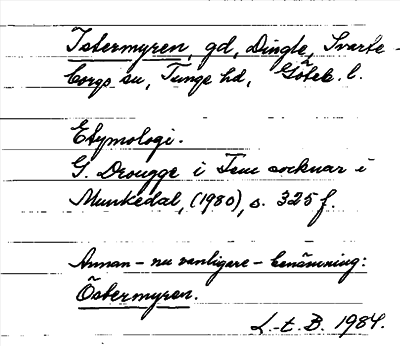 Istermyren, gd, Dingle, Svarte-
borgs sn, Tunge hd, Göteb. l.
Etymologi.
G. Drougge i Fem socknar i
Munkedal, (1980), s. 325 f.
Annan - nu vanligare - benämning:
Östermyren.
L-t. B. 1984.